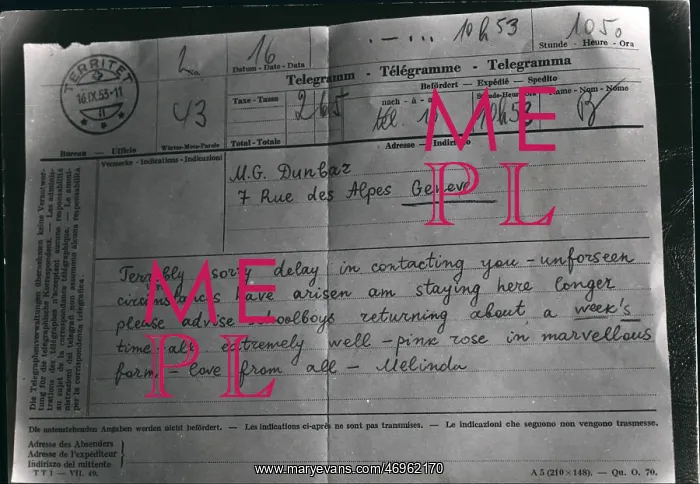 TERRITET
16.IX.53-11
2
16
Datum - Date - Data
10 h 53
1050
Stunde - Heure - Ora
Telegramm - Télégramme - Telegramma
43
Wörter-Mots-Parole
Taxe - Tassa
265
Total - Totale
Befördert - Expédié - Spedito
nach - à - a
Stunde-Heure-Ora
Name - Nom - Nome
tél.
10h53
Bureau — Ufficio
Vermerke - Indications - Indicazioni
Adresse - Indirizzo
M.G. Dunbar
7 Rue des Alpes Geneva
Terribly sorry delay in contacting you - unforseen
circumstances have arisen am staying here longer
please advise schoolboys returning about a week's
time - all extremely well - pink rose in marvellous
form - love from all - Melinda
Die Telegraphenverwaltungen übernehmen keine Verantwortung für die telegraphische Korrespondenz. — Les administrations des télégraphes n'acceptent aucune responsabilité au sujet de la correspondance télégraphique. —
Die untenstehenden Angaben werden nicht befördert. — Les indications ci-après ne sont pas transmises. — Le indicazioni che seguono non vengono trasmesse.
Adresse des Absenders
Adresse de l'expéditeur
Indirizzo del mittente
TT 1 — VII. 49.
A 5 (210 × 148). — Qu. O. 70.
ME
PL
ME
PL
www.maryevans.com/46962170